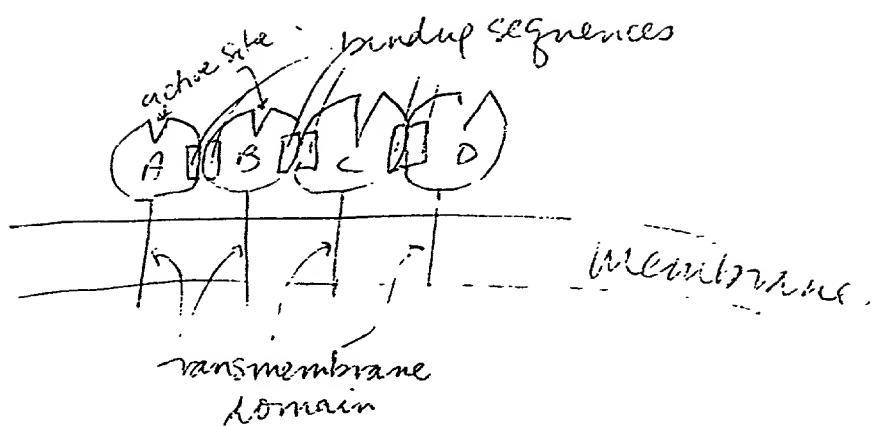 active site
binding sequences
A
B
C
D
membrane.
transmembrane
domain